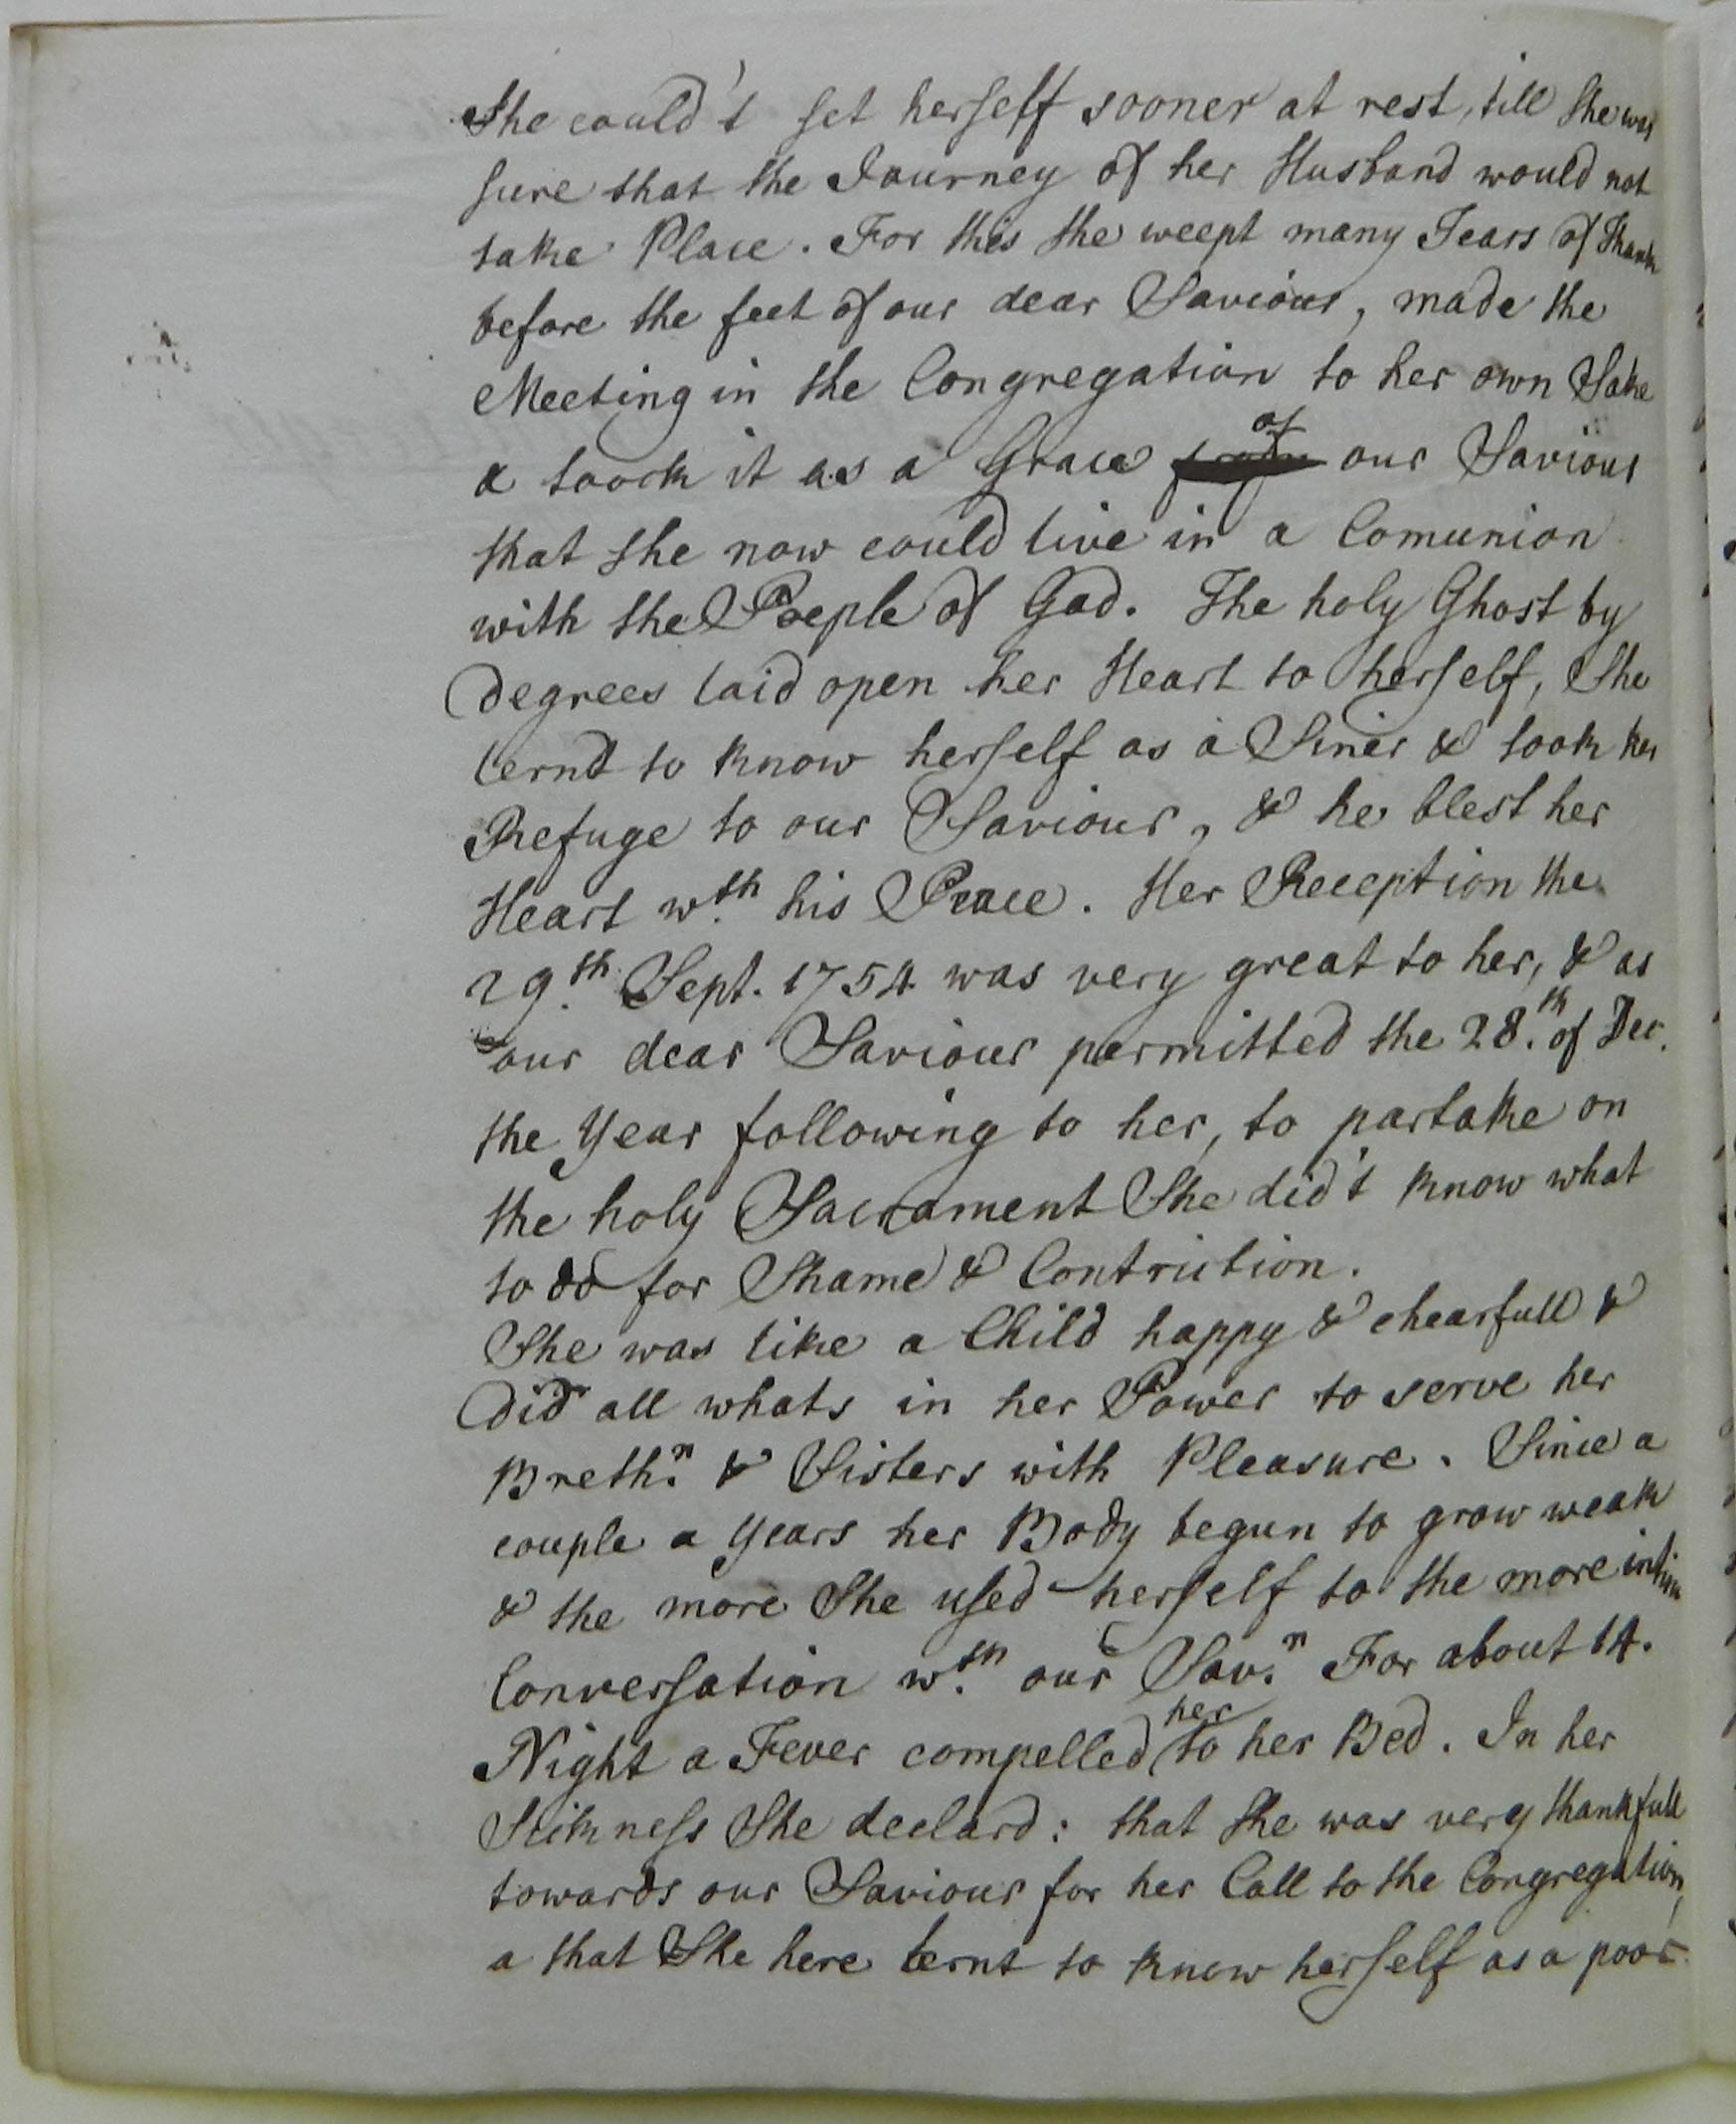 She could't set herself sooner at rest, till She was
sure that the Journey of her Husband would not
take Place. For this She weept many Tears of Thank
before the feet of our dear Saviour, made the
Meeting in the Congregation to her own Sake
& toock it as a Grace of our Saviour
that She now could live in a Comunion
with the Poeple of God. The holy Ghost by
Degrees laid open her Heart to herself, She
lernd to know herself as a Siner & took her
Refuge to our Saviour, & he blest her
Heart wth. his Peace. Her Reception the
29th. Sept. 1754 was very great to her, & as
our dear Saviour permitted the 28.th of Dec.
the Year following to her, to partake on
the holy Sacrament She did't know what
to do for Shame & Contrition.
She was like a Child happy & chearfull &
Did all whats in her Power to serve her
Brethn. & Sisters with Pleasure. Since a
couple a Years her Body begun to grow weak
& the more She used herself to the more intim
Conversation wth. our Sav.r For about 14.
Night a Fever compelled her to her Bed. In her
Sickness She declard: that She was very thankfull
towards our Saviour for her Call to the Congregation,
a that She here lernt to know herself as a poor